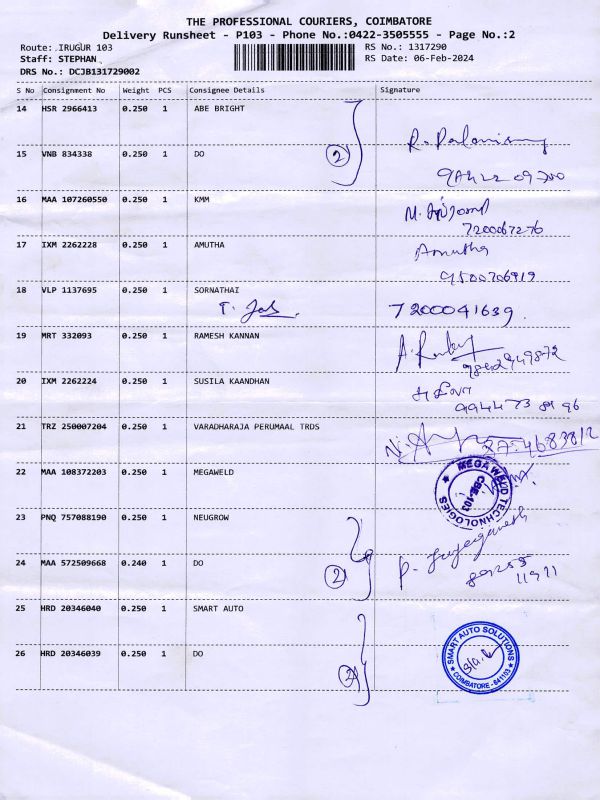 THE PROFESSIONAL COURIERS, COIMBATORE
Delivery Runsheet - P103 - Phone No.:0422-3505555 - Page No.:2
Route: IRUGUR 103
RS No.: 1317290
Staff: STEPHAN
RS Date: 06-Feb-2024
DRS No.: DCJB131729002
S No Consignment No Weight PCS Consignee Details Signature
14 HSR 2966413 0.250 1 ABE BRIGHT
R. Palanisamy
15 VNB 834338 0.250 1 DO 2
16 MAA 107260550 0.250 1 KMM
M.
7200067276
17 IXM 2262228 0.250 1 AMUTHA
Amutha
9500706919
18 VLP 1137695 0.250 1 SORNATHAI
T. 7200041639.
19 MRT 332093 0.250 1 RAMESH KANNAN
A.
20 IXM 2262224 0.250 1 SUSILA KAANDHAN
21 TRZ 250007204 0.250 1 VARADHARAJA PERUMAAL TRDS
22 MAA 108372203 0.250 1 MEGAWELD
MEGAWELD TECHNOLOGIES
CBE-103
23 PNQ 757088190 0.250 1 NEUGROW
24 MAA 572509668 0.240 1 DO 2
P.
25 HRD 20346040 0.250 1 SMART AUTO
26 HRD 20346039 0.250 1 DO
SMART AUTO SOLUTIONS
COIMBATORE - 641103